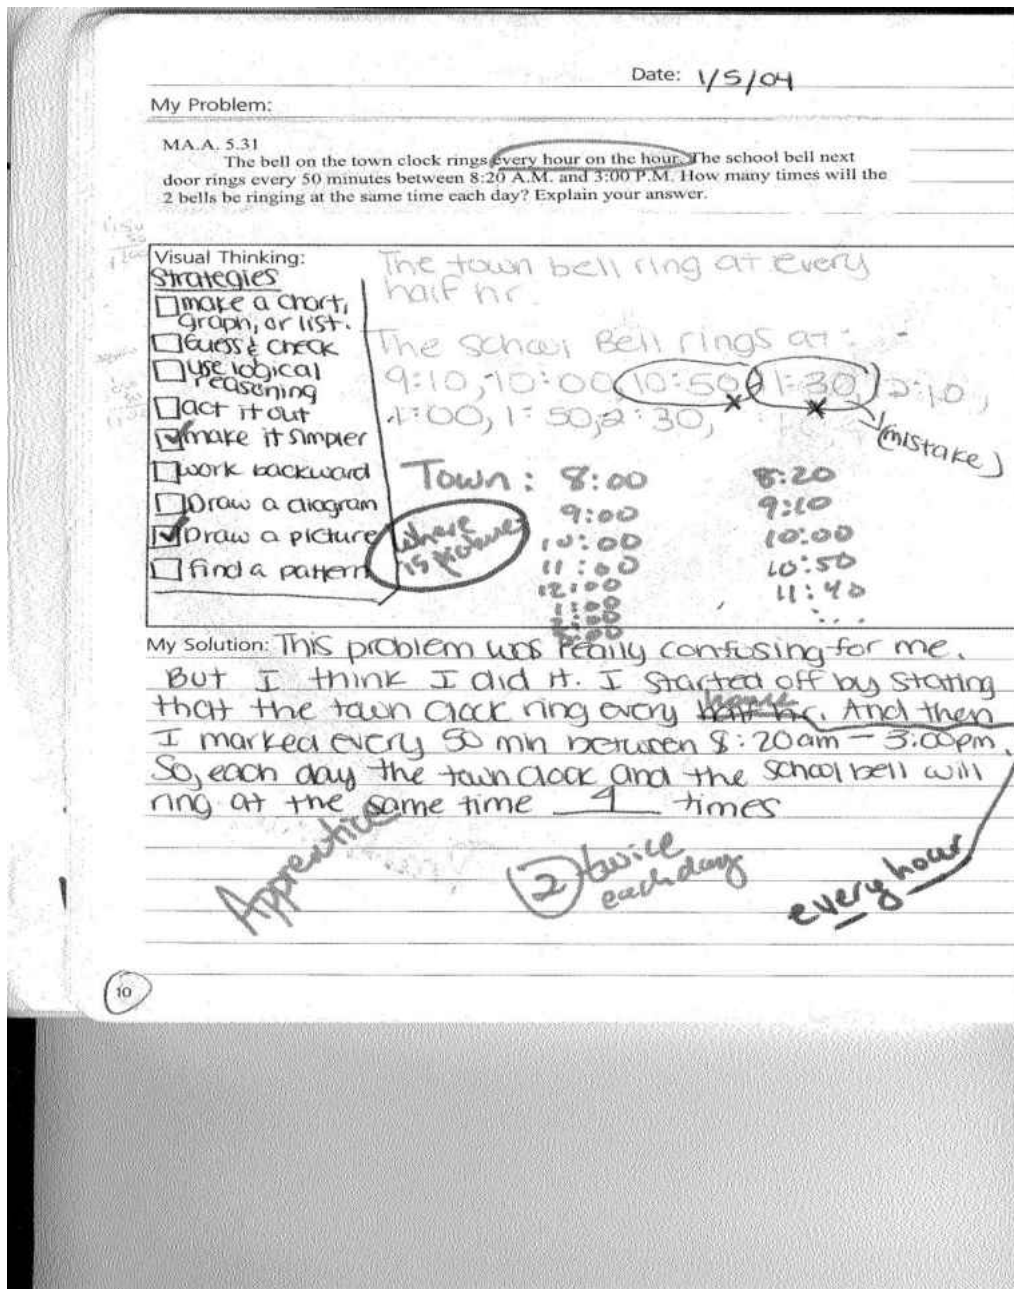 Date: 1/5/04
My Problem:
MA.A. 5.31
The bell on the town clock rings every hour on the hour. The school bell next
door rings every 50 minutes between 8:20 A.M. and 3:00 P.M. How many times will the
2 bells be ringing at the same time each day? Explain your answer.
Visual Thinking:
Strategies
make a chart,
graph, or list.
Guess & check
use logical
reasoning
act it out
make it simpler
work backward
Draw a diagram
Draw a picture
find a pattern
The town bell ring at every
half hr.
The school Bell rings at:
9:10, 10:00, 10:50, 1:30, 2:10,
1:00, 1:50, 2:30,
(mistake)
Town: 8:00
9:00
10:00
11:00
12:00
1:00
2:00
3:00
8:20
9:10
10:00
10:50
11:40
...
where
is
My Solution: This problem was really confusing for me.
But I think I did it. I started off by stating
that the town clock ring every half hr. And then
I marked every 50 min between 8:20am - 3:00pm.
So, each day the town clock and the school bell will
ring at the same time 4 times
Apprentice
2 twice
each day
every hour
10